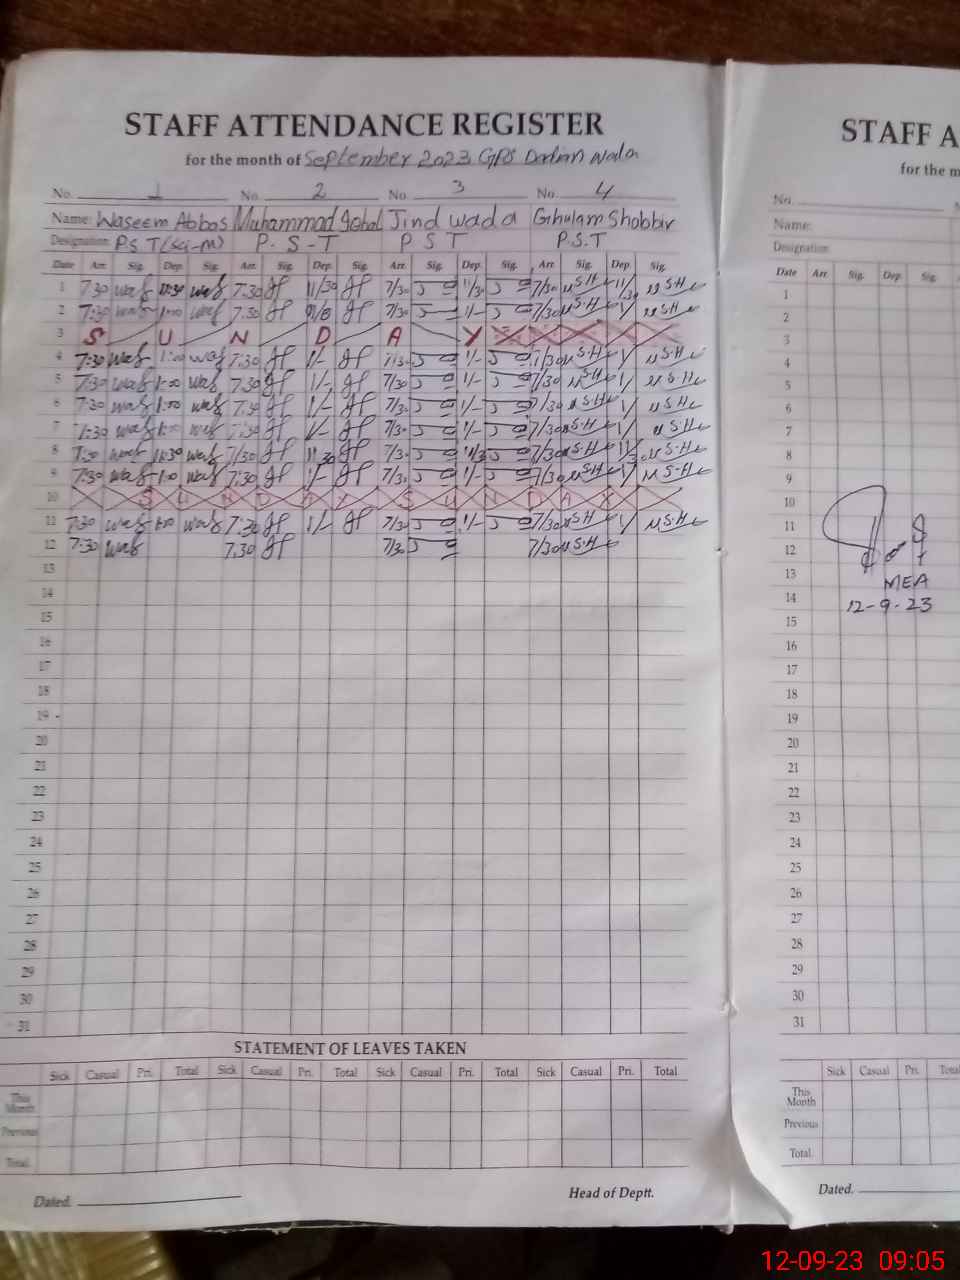 STAFF ATTENDANCE REGISTER
for the month of September 2023 GPS
No. 1 No. 2 No. 3 No. 4
Name: Waseem Abbas Muhammad Iqbal Jind wada Ghulam Shabbir
Designation: P.S.T (Sci-M) P.S-T P S T P.S.T
Date Arr. Sig. Dep. Sig. Arr. Sig. Dep. Sig. Arr. Sig. Dep. Sig. Arr. Sig. Dep. Sig.
1 7:30 was 11:30 was 7.30 11/30 7/30 11/30 7/30 11/30
2 7:30 was 1:00 was 7.30 7/30 1/- 7/30 1/
3 S U N D A Y
4 7:30 was 1:00 was 7.30 1/- 7/30 1/- 7/30 1/
5 7:30 was 1:00 was 7.30 1/- 7/30 1/- 7/30 1/
6 7:30 was 1:00 was 7:30 1/- 7/30 1/- 7/30 1/
7 7:30 was 1:00 was 7:30 1/- 7/30 1/- 7/30 1/
8 7:30 was 11:30 was 7/30 11.30 7/30 11/30 7/30 11/30
9 7:30 was 1:00 was 7:30 1/- 7/30 1/- 7/30 1/
10 S U N D A Y S U N D A Y
11 7:30 was 1:00 was 7:30 1/- 7/30 1/- 7/30 1/
12 7:30 was 7.30 7/30 7/30
13
14
15
16
17
18
19
20
21
22
23
24
25
26
27
28
29
30
31
STATEMENT OF LEAVES TAKEN
Sick Casual Pri. Total Sick Casual Pri. Total Sick Casual Pri. Total Sick Casual Pri. Total
This Month
Previous
Total
Dated. Head of Deptt.
STAFF A
for the m
No.
Name:
Designation:
Date Arr. Sig. Dep. Sig.
1
2
3
4
5
6
7
8
9
10
11
12
13 MEA
14 12-9-23
15
16
17
18
19
20
21
22
23
24
25
26
27
28
29
30
31
Sick Casual Pri. Total
This Month
Previous
Total
Dated.
12-09-23 09:05